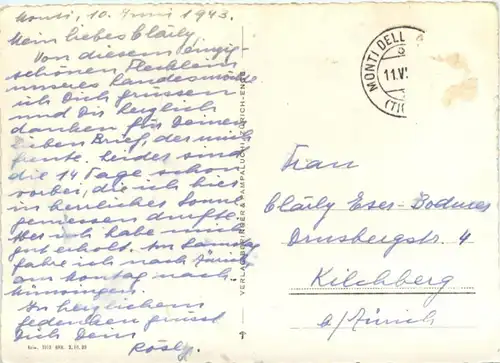 Monti, 10. Juni 1943.
Mein liebes Cläily,
Von diesem einzig-
schönen Flecklein
unseres Landes möchte
ich Dich grüssen
und Dir herzlich
danken für Deinen
lieben Brief, der mich
freute. Leider sind
die 14 Tage schon
vorbei, die ich hier
in herrlicher Sonne
geniessen durfte.
Aber ich habe mich
gut erholt. Am Samstag
fahre ich nach Zürich
am Montag nach
Münsingen.
In herzlichem
Gedenken grüsst
Dich Dein
Rösly.
VERLAG BYRINGER & PAMPALUCHI, ZÜRICH-ENGE
MONTI DELL
11.VI
(TIC
Frau
Cläily Eser-Bodmer
Drusbergstr. 4
Kilchberg
b/Zürich